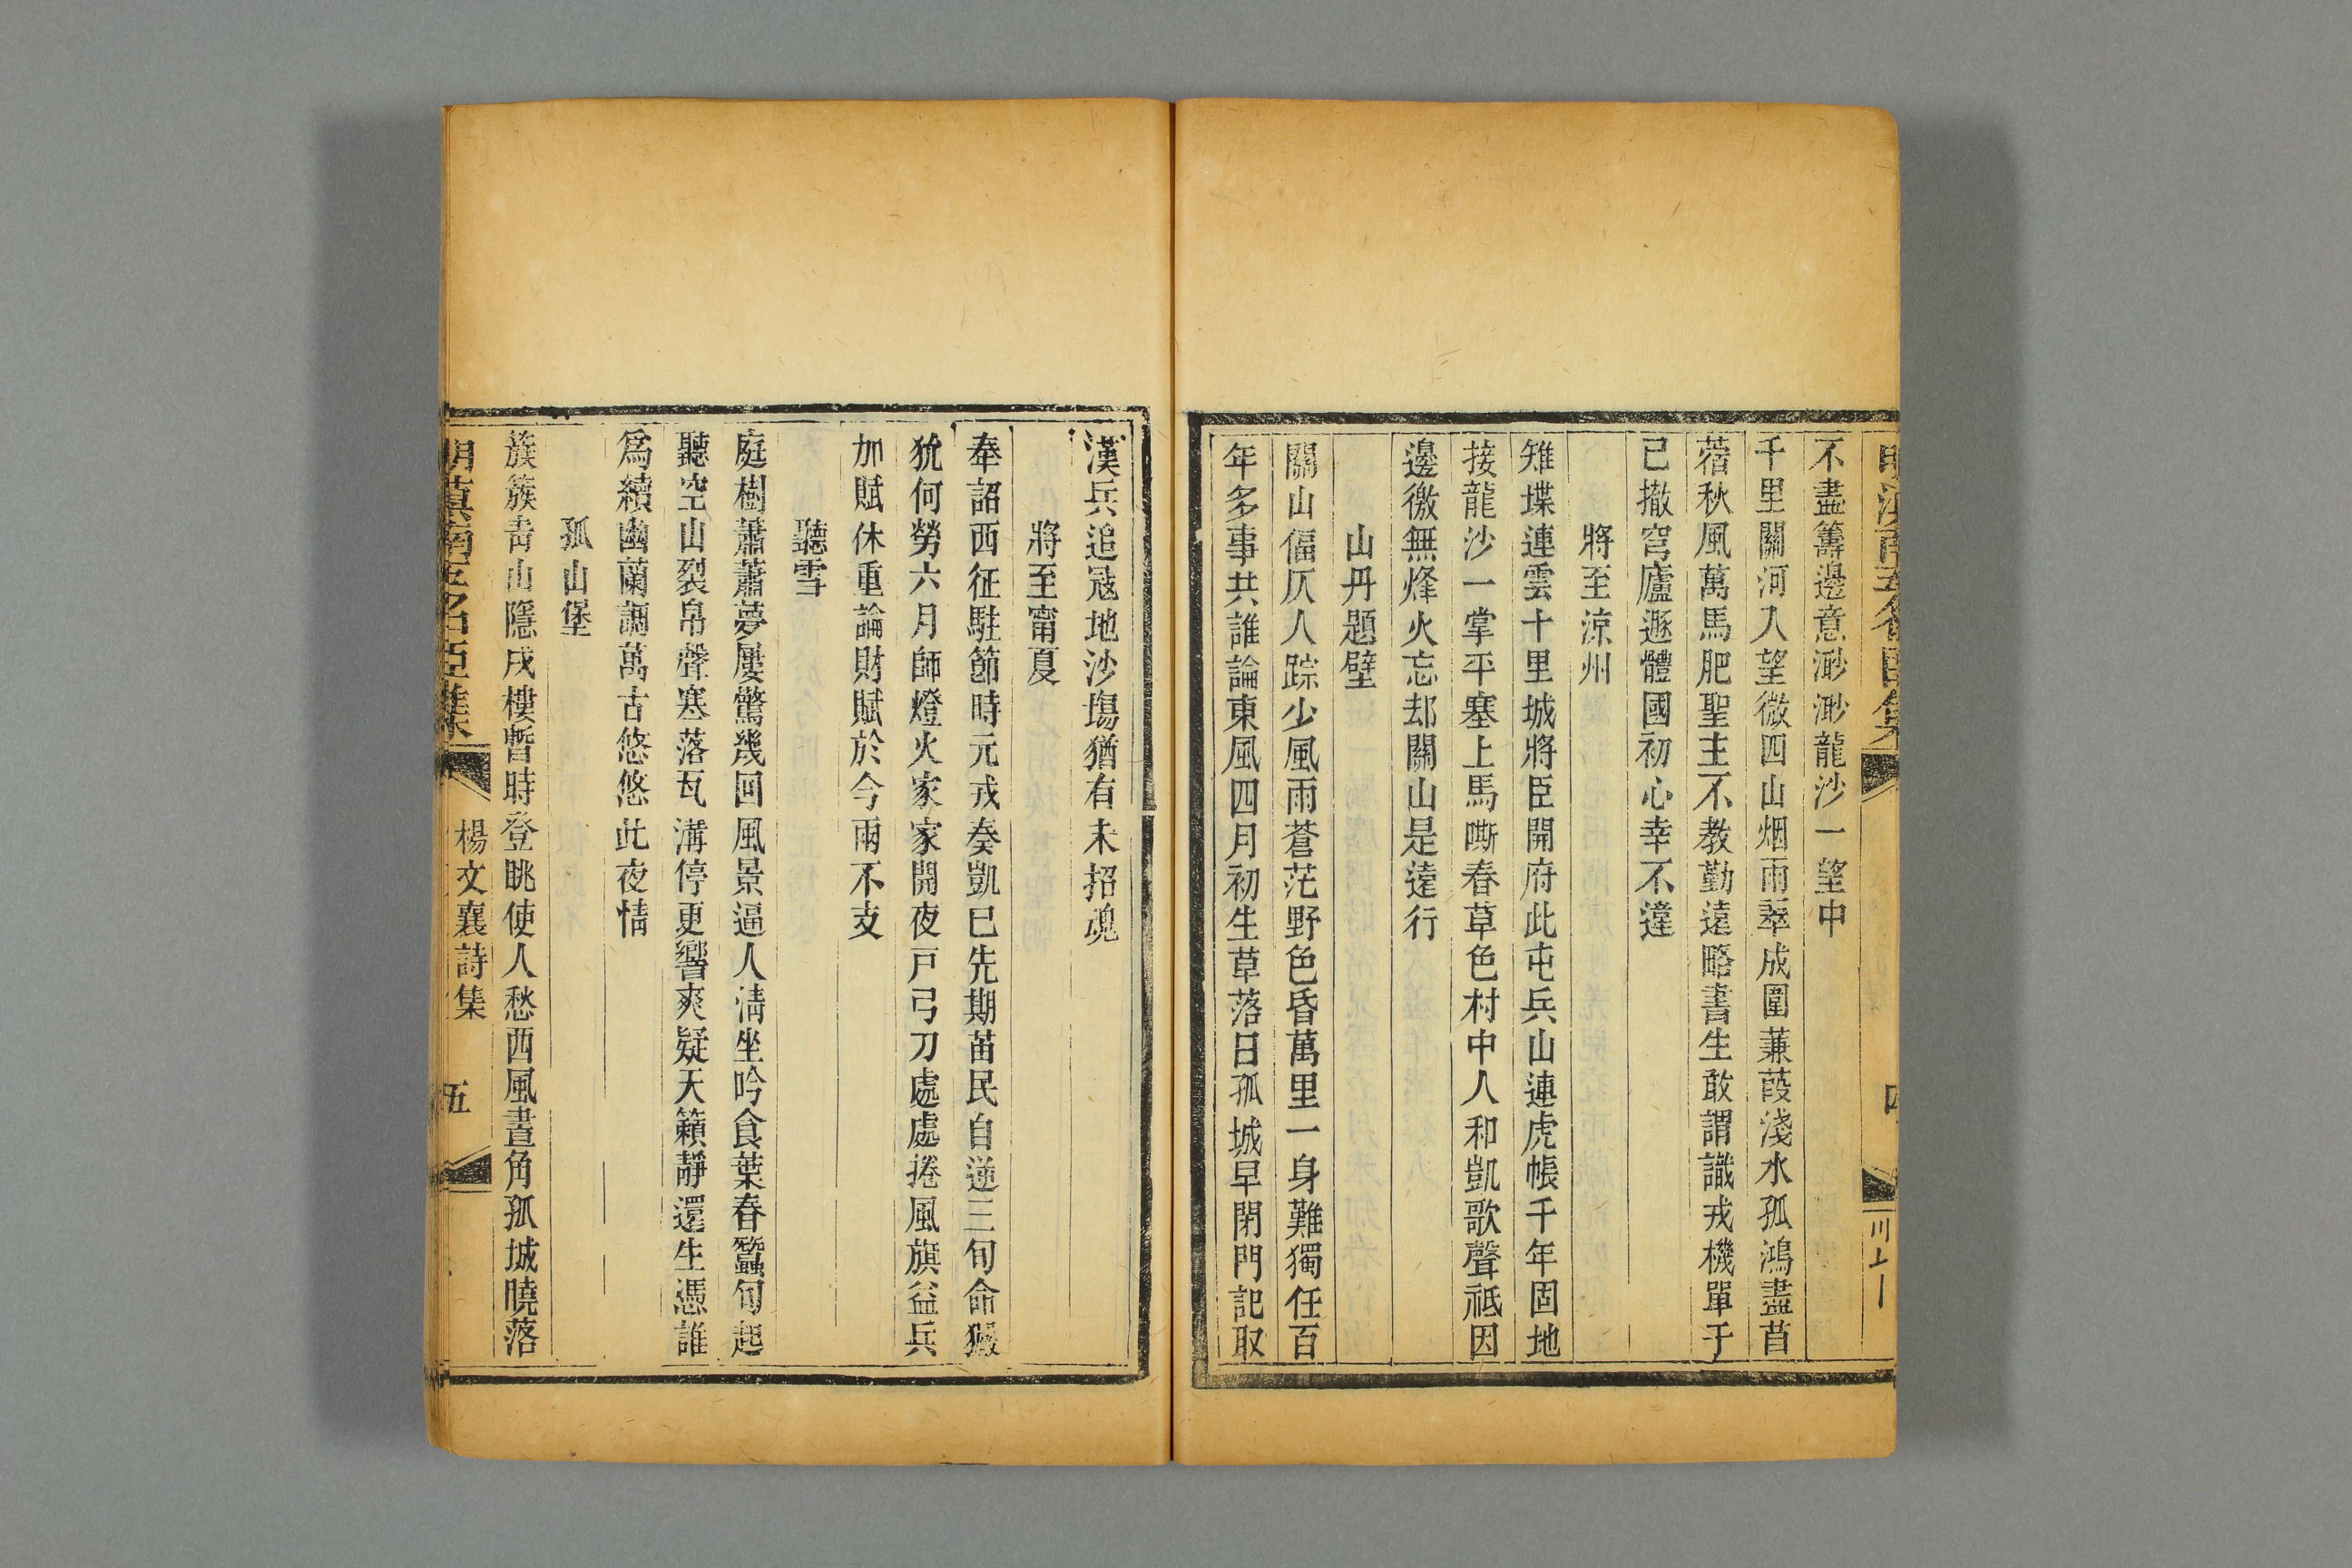 不盡籌邊意渺渺龍沙一望中
千里關河入望微四山烟雨翠成圍蒹葭淺水孤鴻盡苜
蓿秋風萬馬肥聖主不教勤遠略書生敢謂識戎機單于
已撤穹廬遯體國初心幸不違
將至涼州
雉堞連雲十里城將臣開府此屯兵山連虎帳千年固地
接龍沙一掌平塞上馬嘶春草色村中人和凱歌聲祗因
邊徼無烽火忘却關山是遠行
山丹題壁
關山偪仄人踪少風雨蒼茫野色昏萬里一身難獨任百
年多事共誰論東風四月初生草落日孤城早閉門記取
漢兵追冦地沙塲猶有未招魂
將至甯夏
奉詔西征駐節時元戎奏凱已先期苗民自逆三旬命玁
狁何勞六月師燈火家家開夜戸弓刀處處捲風旗益兵
加賦休重論財賦於今兩不支
聽雪
庭樹蕭蕭夢屢驚幾回風景逼人淸坐吟食葉春蠶句起
聽空山裂帛聲寒落瓦溝停更響爽疑天籟靜還生憑誰
爲續幽蘭調萬古悠悠此夜情
孤山堡
簇簇靑山隱戍樓暫時登眺使人愁西風晝角孤城曉落
明滇南五名臣集
楊文襄詩集
五